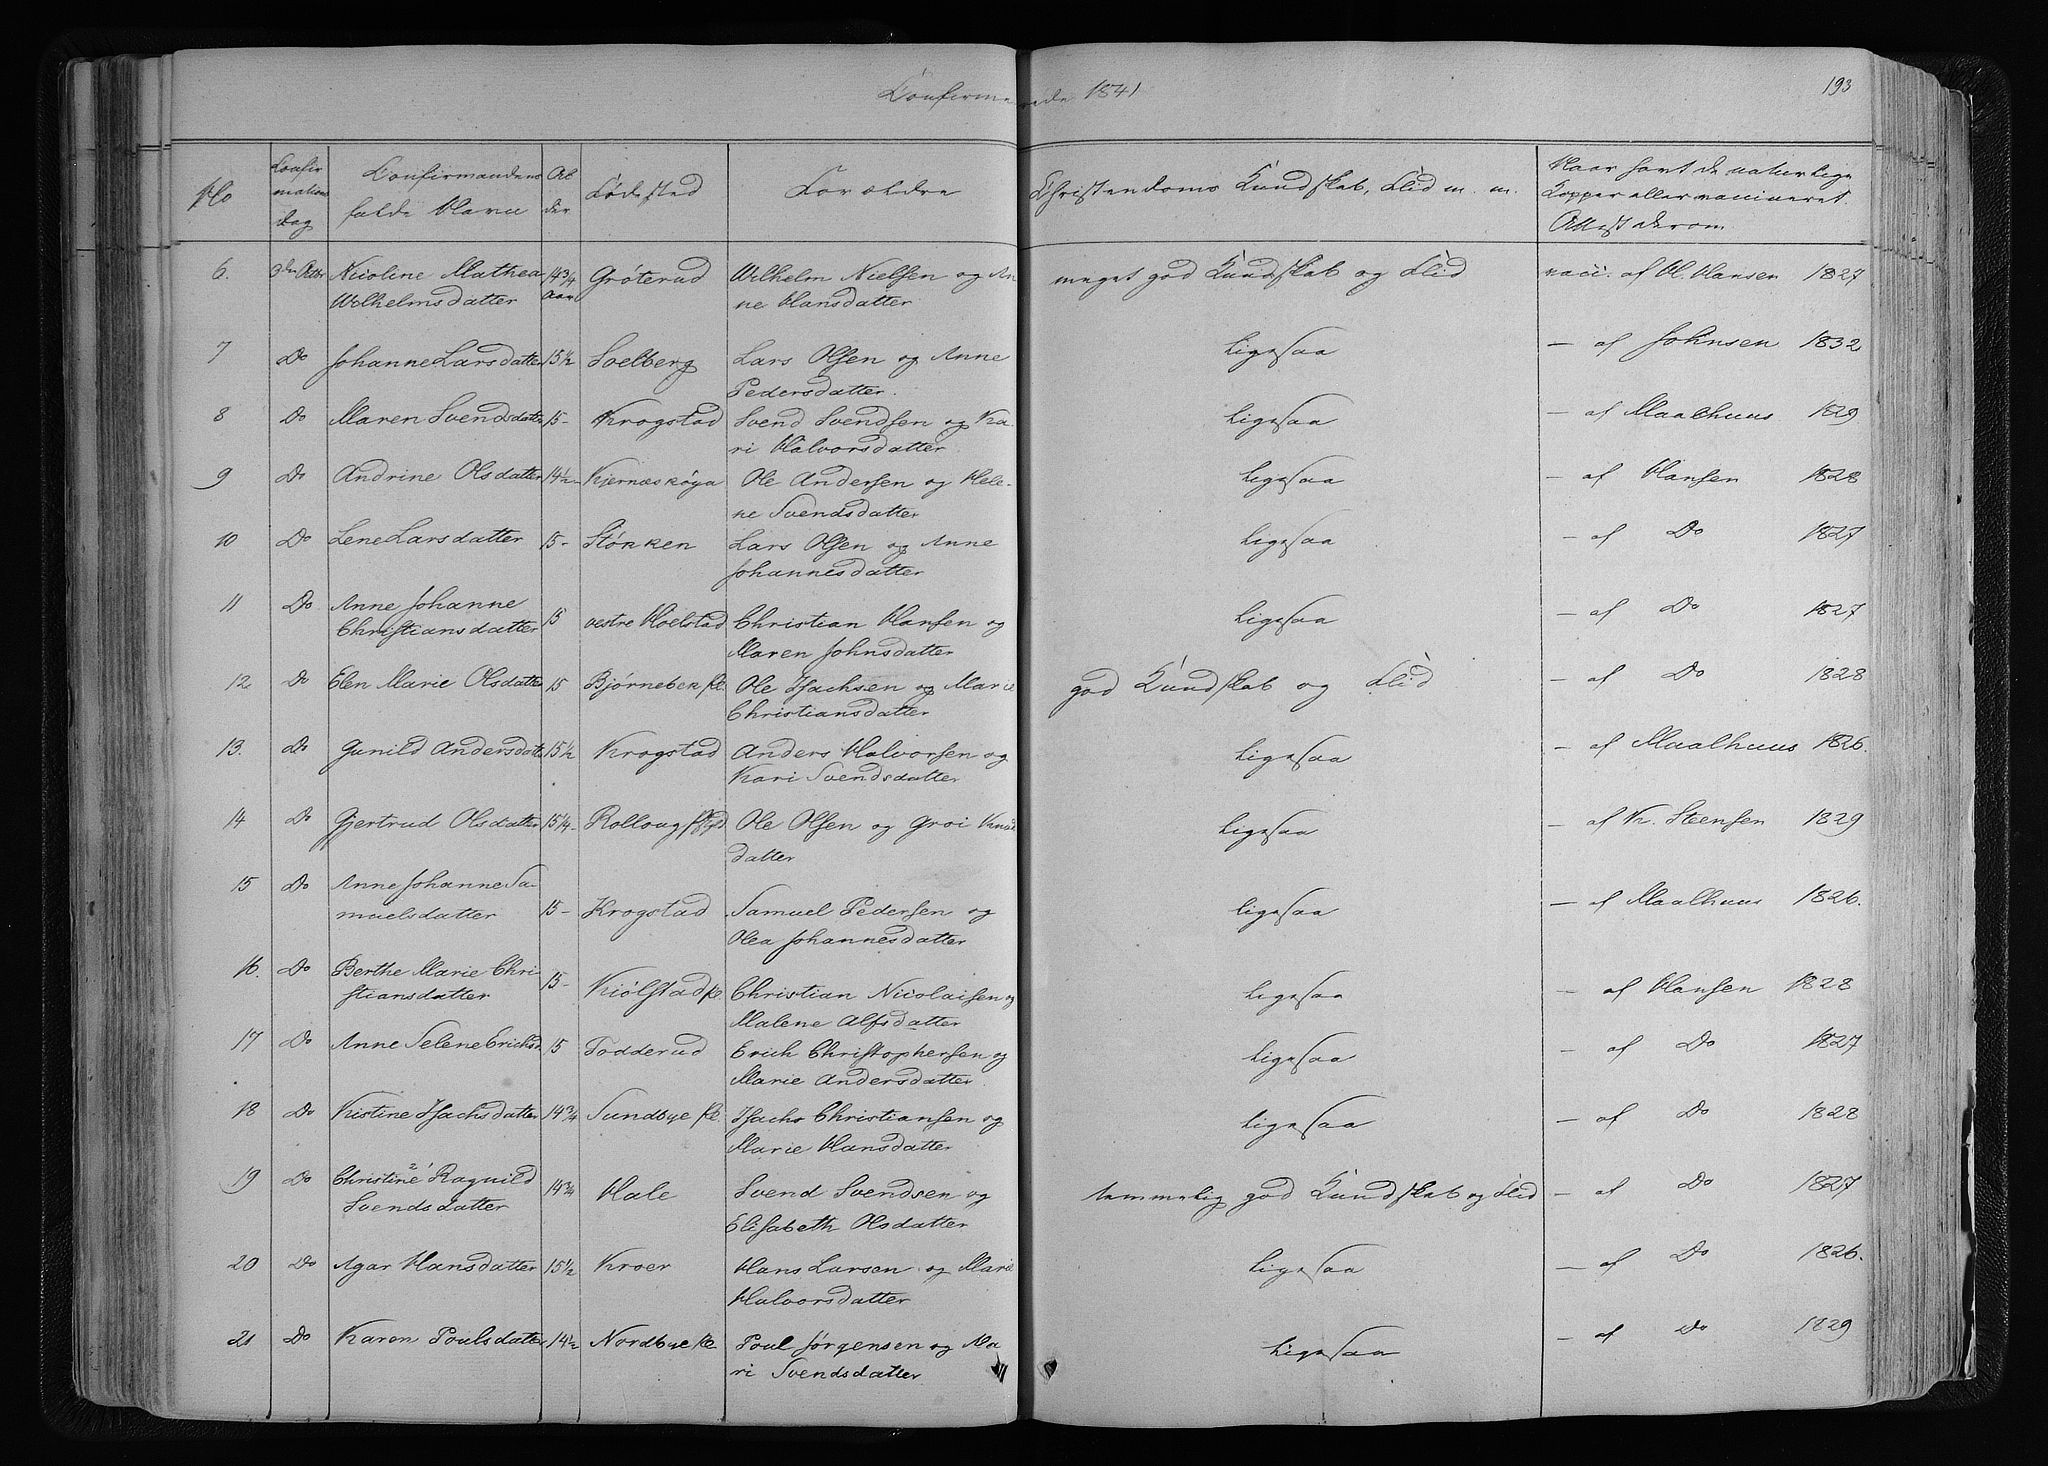 Confirmerede 1841
193
No
Confirmations Dag
Confirmandens fulde Navn
Alder
Fødested
Forældre
Christendoms Kundskab, Flid m. m.
Naar havt de naturlige Kopper eller vaccineret. Attest derom
6. 3die Octbr Nicoline Mathea 14 3/4 Grøterud Wilhelm Nielsen og An meget god Kundskab og Flid vacc. af H. Hansen 1827
Wilhelmsdatter Aar ne Hansdatter
7 Do Johanne Larsdatter 15 1/2 Svelberg Lars Olsen og Anne ligesaa — af Johnsen 1832
Pedersdatter
8 Do Maren Svendsdatter 15- Krogstad Svend Svendsen og Ka ligesaa — af Maalhuus 1829
ri Halvorsdatter
9 Do Andrine Olsdatter 14 1/2- Kjernæskøya Ole Andersen og Hele- ligesaa — af Hansen 1828
ne Svendsdatter
10 Do Lene Larsdatter 15- Størken Lars Olsen og Anne ligesaa — af Do 1827
Johannesdatter
11 Do Anne Johanne
Christiansdatter 15 vestre Hoelstad Christian Hansen og ligesaa — af Do 1827
Maren Johnsdatter
12 Do Elen Marie Olsdatter 15 Bjørnebek Ole Isachsen og Marie god Kundskab og Flid — af Do 1828
Christiansdatter
13. Do Gunild Andersdatter 15 1/2 Krogstad Anders Halvorsen og ligesaa — af Maalhuus 1826.
Kari Svendsdatter
14 Do Gjertrud Olsdatter 15 1/4- Rollaug Ole Olsen og Groi Knud ligesaa — af K. Steensen 1829
datter
15 Do Anne Johanne Sa-
muelsdatter 15- Krogstad Samuel Pedersen og ligesaa — af Maalhuus 1826.
Olea Johannesdatter
16. Do Berthe Marie Chri-
stiansdatter 15- Kiølstad Christian Nicolaisen og ligesaa — af Hansen 1828
Malene Alfsdatter
17 Do Anne Selene Ericksd 15 Todderud Erich Christophersen og ligesaa — af Do 1827
Marie Andersdatter
18 Do Kistine Isachsdatter 14 3/4 Sundbye Isachs Christiansen og ligesaa — af Do 1828
Marie Hansdatter
19 Do Christine 2 1 Ragnild 14 3/4 Hale Svend Svendsen og temmelig god Kundskab og Flid — af Do 1827
Svendsdatter Elisabeth Olsdatter
20 Do Agar Hansdatter 15 1/2 Kroer Hans Larsen og Marie ligesaa — af Do 1826.
Halvorsdatter
21 Do Karen Poulsdatter 14 1/2 Nordbye Poul Jørgensen og Ma ligesaa — af Do 1829
ri Svendsdatter